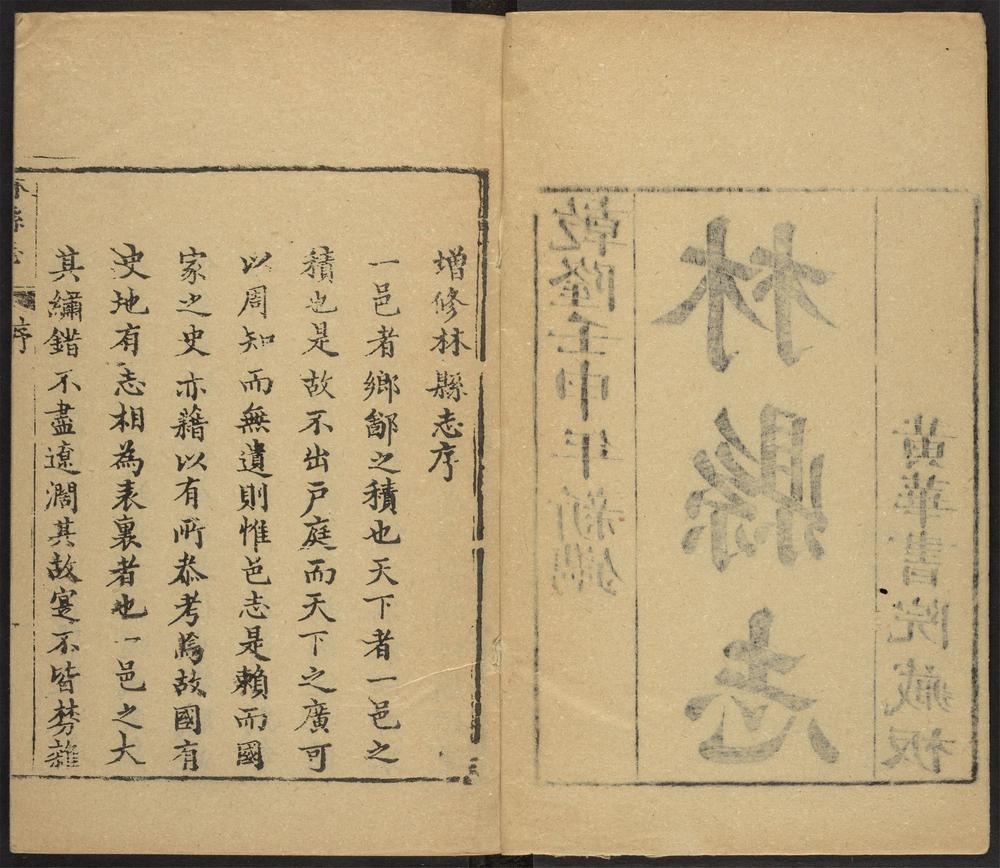 乾隆壬申年新鐫
林縣志
黃華書院藏板
增修林縣志序
一邑者鄉鄙之積也天下者一邑之
積也是故不出戶庭而天下之廣可
以周知而無遺則惟邑志是賴而國
家之史亦藉以有所叅考焉故國有
史地有志相為表裏者也一邑之大
其繡錯不盡遼濶其故寔不皆棼雜
林縣志 序